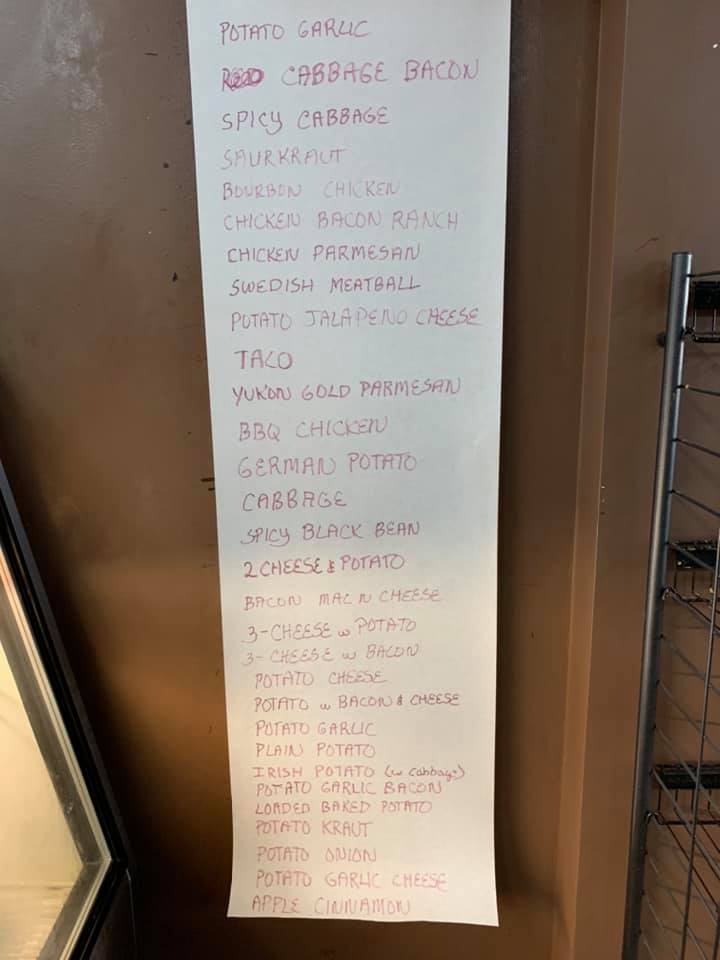 POTATO GARLIC
RED CABBAGE BACON
SPICY CABBAGE
SAURKRAUT
BOURBON CHICKEN
CHICKEN BACON RANCH
CHICKEN PARMESAN
SWEDISH MEATBALL
POTATO JALAPENO CHEESE
TACO
YUKON GOLD PARMESAN
BBQ CHICKEN
GERMAN POTATO
CABBAGE
SPICY BLACK BEAN
2 CHEESE & POTATO
BACON MAC N CHEESE
3-CHEESE w POTATO
3-CHEESE w BACON
POTATO CHEESE
POTATO w BACON & CHEESE
POTATO GARLIC
PLAIN POTATO
IRISH POTATO (w cabbage)
POTATO GARLIC BACON
LOADED BAKED POTATO
POTATO KRAUT
POTATO ONION
POTATO GARLIC CHEESE
APPLE CINNAMON